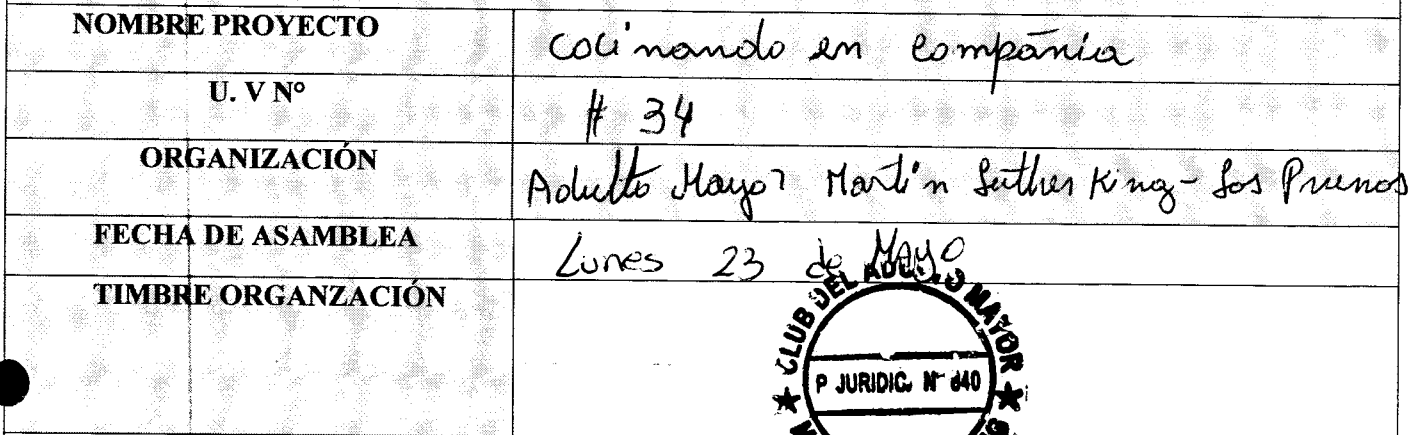 NOMBRE PROYECTO
Cocinando en compañia
U. V N°
# 34
ORGANIZACIÓN
Adulto Mayor Martin Luther King - Los Prunos
FECHA DE ASAMBLEA
Lunes 23 de Mayo
TIMBRE ORGANZACIÓN
CLUB DEL ADULTO MAYOR
P JURIDIC. N° 640